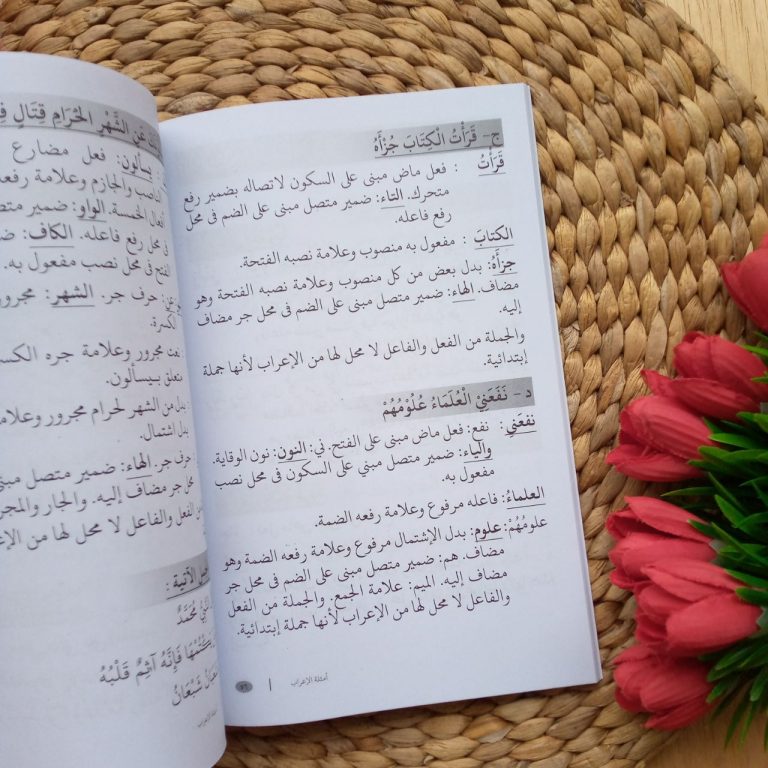 ج- قَرَأْتُ الْكِتَابَ جُزْأَهُ
قَرَأْتُ : فعل ماض مبنى على السكون لاتصاله بضمير رفع
متحرك. التاء: ضمير متصل مبنى على الضم فى محل
رفع فاعله.
الكتابَ : مفعول به منصوب وعلامة نصبه الفتحة.
جزأَهُ: بدل بعض من كل منصوب وعلامة نصبه الفتحة وهو
مضاف. الهاء: ضمير متصل مبنى على الضم فى محل جر مضاف
إليه.
والجملة من الفعل والفاعل لا محل لها من الإعراب لأنها جملة
إبتدائية.
د- نَفَعَنِيْ الْعُلَمَاءُ عُلُوْمُهُمْ
نفعَنِي: نفع: فعل ماض مبنى على الفتح. ني: النون: نون الوقاية.
والياء: ضمير متصل مبنى على السكون فى محل نصب
مفعول به.
العلماءُ: فاعله مرفوع وعلامة رفعه الضمة.
علومُهُمْ: علوم: بدل الإشتمال مرفوع وعلامة رفعه الضمة وهو
مضاف. هم: ضمير متصل مبنى على الضم فى محل جر
مضاف إليه. الميم: علامة الجمع. والجملة من الفعل
والفاعل لا محل لها من الإعراب لأنها جملة إبتدائية.
أمثلة الإعراب |
عَنِ الشَّهْرِ الْحَرَامِ قِتَالٍ
يسألون: فعل مضارع
والجازم وعلامة رفعه
الخمسة. الواو: ضمير متصل
محل رفع فاعله. الكاف:
الفتح فى محل نصب مفعول به.
عن: حرف جر. الشهر: مجرور
الكسرة.
نعت مجرور وعلامة جره
متعلق بـيسألون.
بدل من الشهر لحرام مجرور
بدل اشتمال.
حرف جر. الهاء: ضمير متصل
محل جر مضاف إليه. والجار
من الفعل والفاعل لا محل لها من
الآتية :
مُحَمَّدٌ
فَإِنَّهُ آثِمٌ قَلْبُهُ
شَعْبَانُ